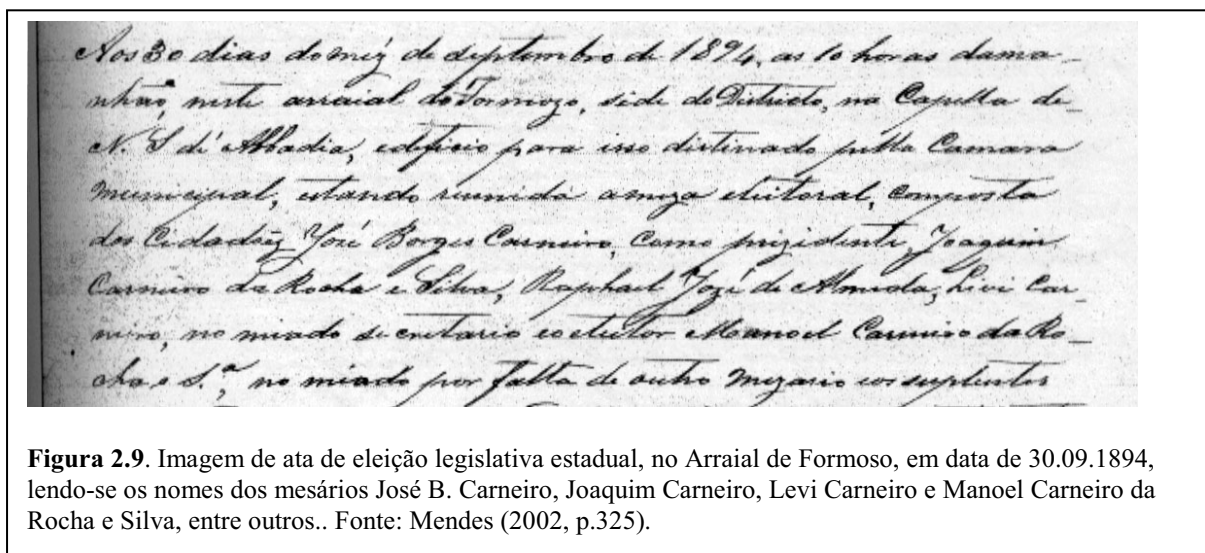 Aos 30 dias do mez de septembro de 1894, as 10 horas dama_
nhão, neste arraial do Formozo, séde do Districto, na Capella de_
N. S. de Abbadia, edificio para isso distinado pella Camara
Municipal, estando reunida a meza eleitoral, composta
dos Cidadões José Borges Carneiro, como prizidente, Joaquim
Carneiro da Rocha e Silva, Raphael José de Almeda, Livi Car_
neiro, no miado secretario e o eleitor Manoel Carneiro da Ro_
cha e S.ª, no miado por falta de outro Mezario e os suplentes
Figura 2.9. Imagem de ata de eleição legislativa estadual, no Arraial de Formoso, em data de 30.09.1894,
lendo-se os nomes dos mesários José B. Carneiro, Joaquim Carneiro, Levi Carneiro e Manoel Carneiro da
Rocha e Silva, entre outros.. Fonte: Mendes (2002, p.325).